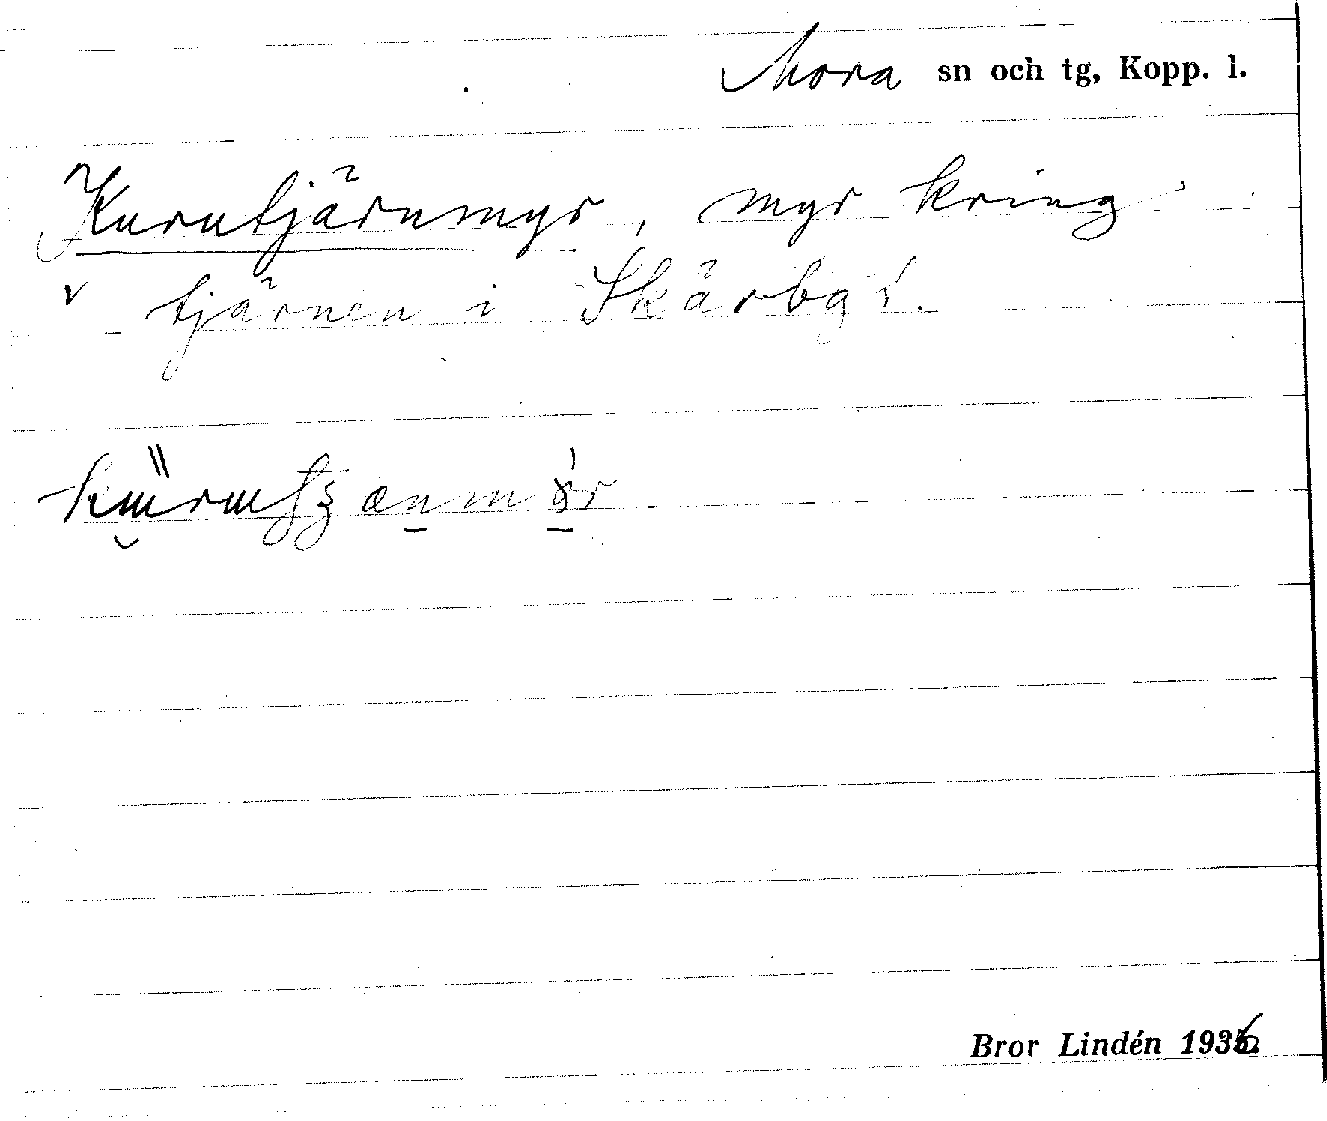 Mora sn och tg, Kopp. l.
Kurutjärnmyr, myr kring
v tjärnen i Skärbg l.
Bror Lindén 1936.